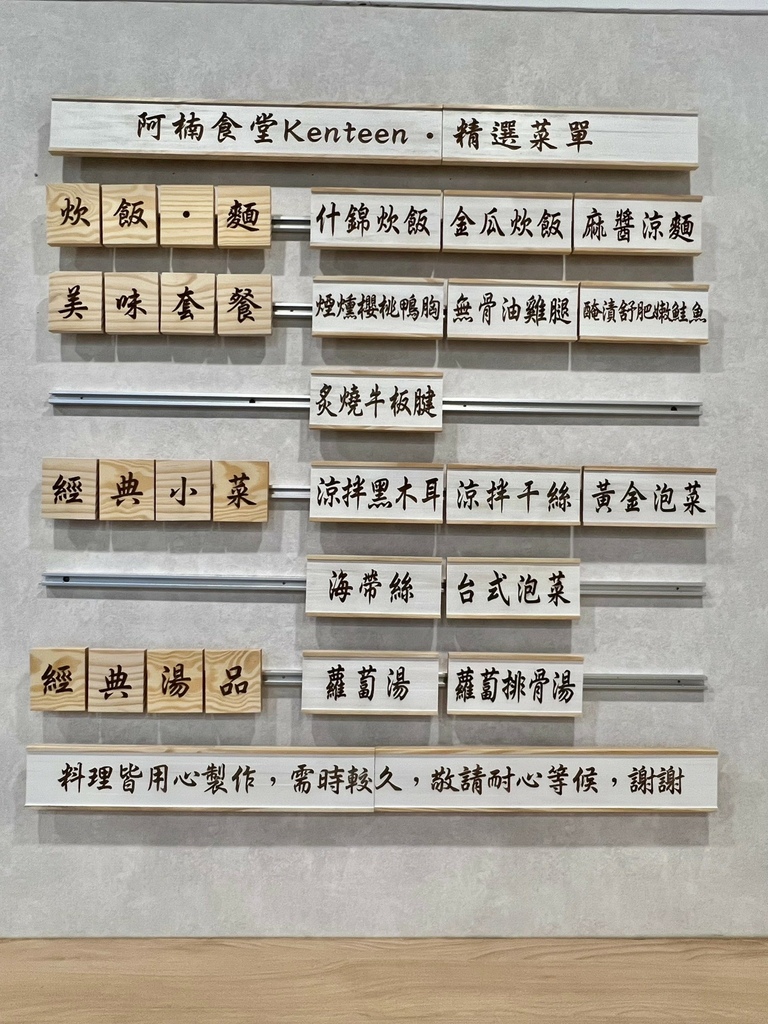 阿楠食堂Kenteen・精選菜單
炊飯・麵 什錦炊飯 金瓜炊飯 麻醬涼麵
美味套餐 煙燻櫻桃鴨胸 無骨油雞腿 醃漬舒肥嫩鮭魚
炙燒牛板腱
經典小菜 涼拌黑木耳 涼拌干絲 黃金泡菜
海帶絲 台式泡菜
經典湯品 蘿蔔湯 蘿蔔排骨湯
料理皆用心製作，需時較久，敬請耐心等候，謝謝